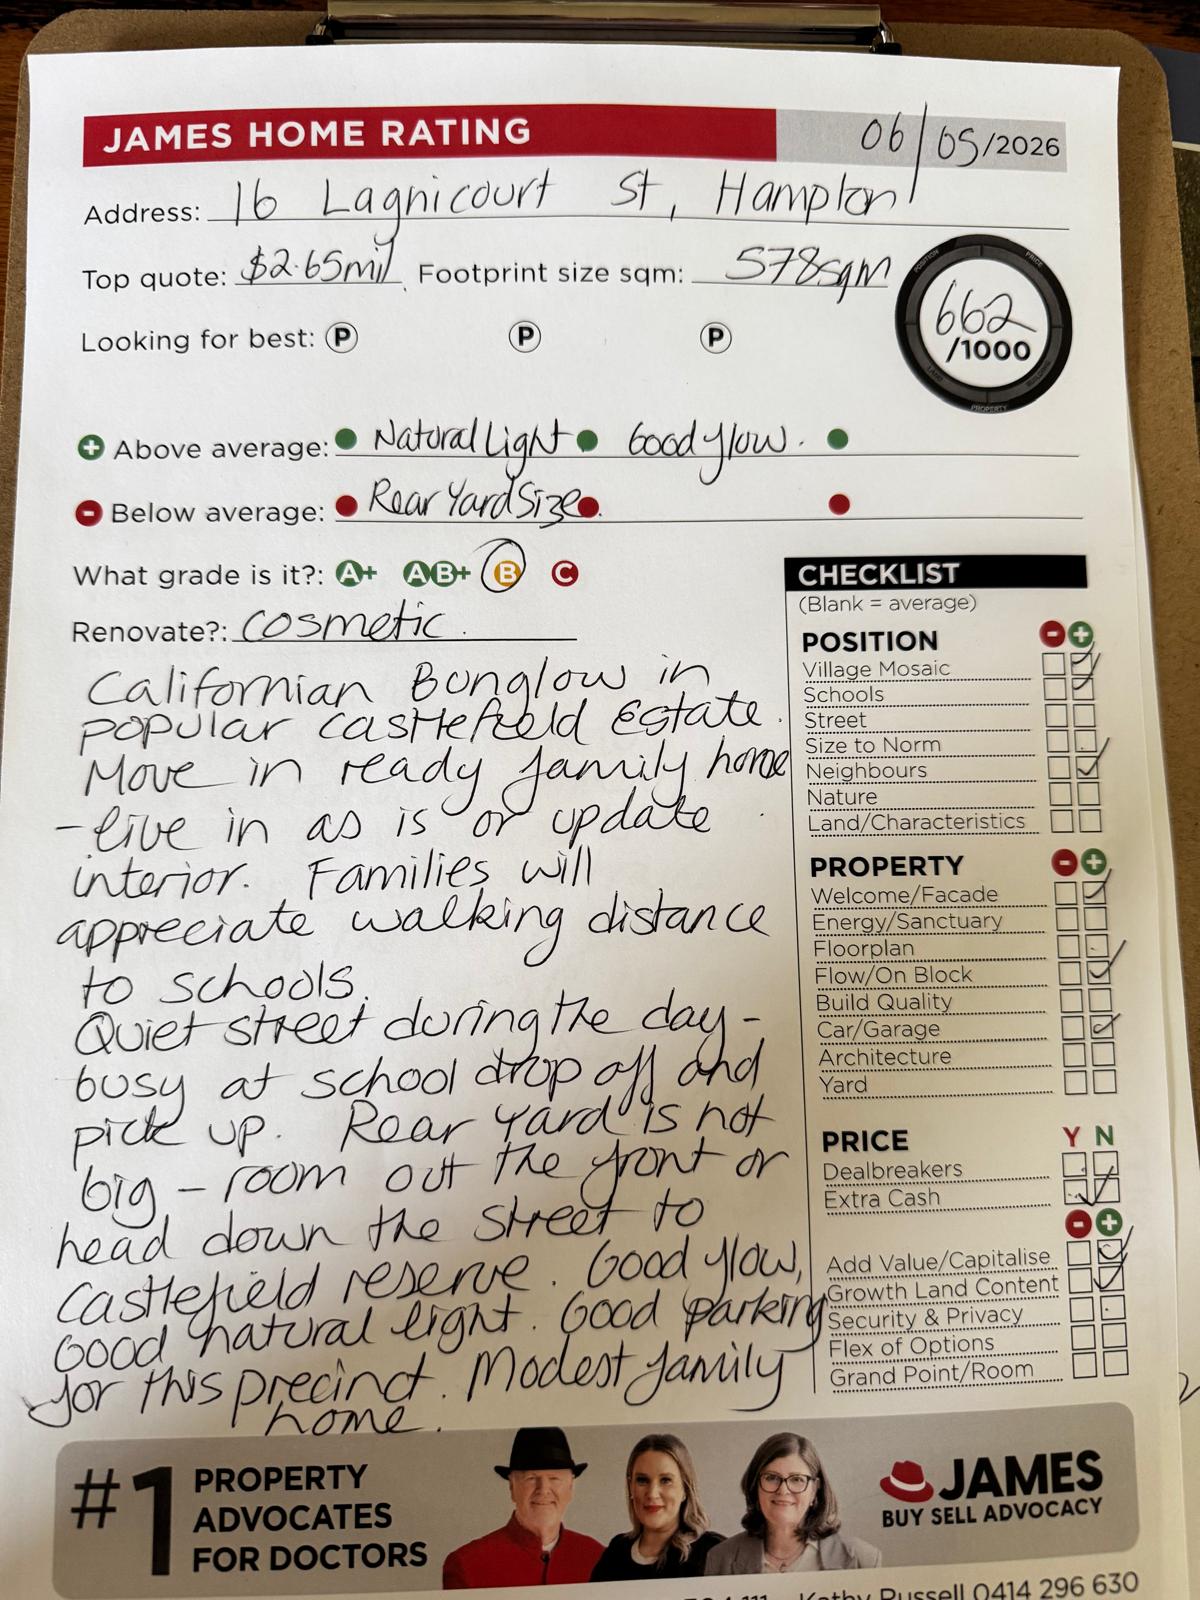 JAMES HOME RATING 06/05/2026
Address: 16 Lagnicourt St, Hampton
Top quote: $2.65mil Footprint size sqm: 578sqm
POSITION PRICE LAND BUILDING PROPERTY
662 /1000
Looking for best: P P P
+ Above average: Natural Light Good flow.
- Below average: Rear Yard Size.
What grade is it?: A+ AB+ B C
Renovate?: Cosmetic.
Californian Bunglow in
popular Castlefield Estate.
Move in ready family home
- live in as is or update
interior. Families will
appreciate walking distance
to schools.
Quiet street during the day -
busy at school drop off and
pick up. Rear Yard is not
big - room out the front or
head down the street to
Castlefield reserve. Good flow,
Good natural light. Good parking
for this precinct. Modest family
home.
CHECKLIST
(Blank = average)
POSITION - +
Village Mosaic
Schools
Street
Size to Norm
Neighbours
Nature
Land/Characteristics
PROPERTY - +
Welcome/Facade
Energy/Sanctuary
Floorplan
Flow/On Block
Build Quality
Car/Garage
Architecture
Yard
PRICE Y N
Dealbreakers
Extra Cash
- +
Add Value/Capitalise
Growth Land Content
Security & Privacy
Flex of Options
Grand Point/Room
#1 PROPERTY
ADVOCATES
FOR DOCTORS
JAMES
BUY SELL ADVOCACY
Kathy Russell 0414 296 630